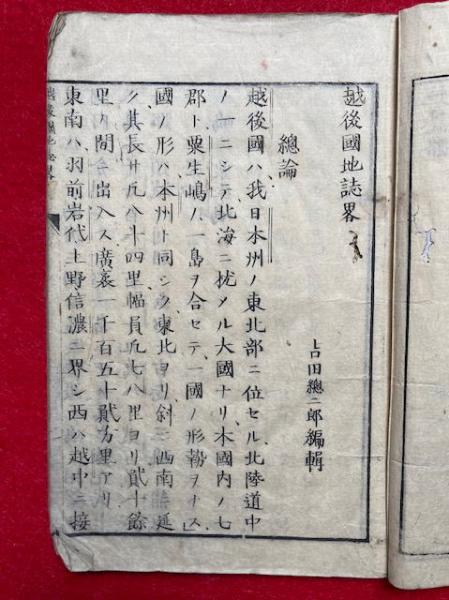 越後國地誌畧
吉田總二郎編輯
總論
越後國ハ我日本州ノ東北部ニ位セル北陸道中
ノ一ニシテ北海ニ拢メル大國ナリ本國内ノ七
郡ト粟生嶋ノ一島ヲ合セテ一國ノ形勢ヲナス
國ノ形ハ本州ト同シク東北ヨリ斜ニ西南ニ延
ク其長サ凡八十四里幅員凡七八里ヨリ貳十餘
里ノ間ニ出入ス廣袤一千百五十貳方里アリ
東南ハ羽前岩代上野信濃ニ界シ西ハ越中ニ接